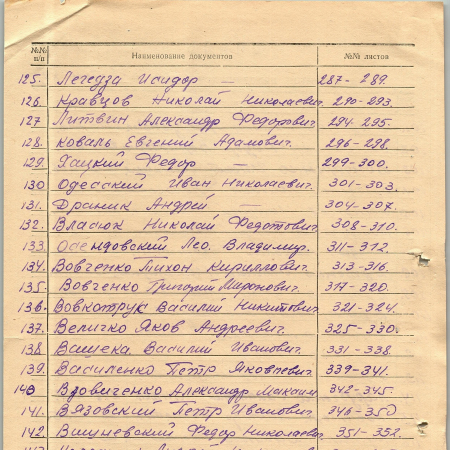 №№ п/п Наименование документов №№ листов
125. Легедза Исидор — 287-289
126. Кравцов Николай Николаевич. 290-293.
127 Литвин Александр Федорович. 294-295.
128. Коваль Евгений Адамович. 296-298.
129. Хацкий Федор — 299-300.
130 Одесский Иван Николаевич. 301-303.
131. Драник Андрей — 304-307.
132. Власюк Николай Федотович 308-310.
133. Осендовский Лео. Владимир. 311-312.
134. Вовченко Тихон Кириллович. 313-316.
135. Вовченко Григорий Миронович. 317-320.
136. Вовкотруб Василий Никитович 321-324.
137. Величко Яков Андреевич. 325-330.
138 Ващека Василий Иванович. 331-338.
139. Василенко Петр Яковлевич. 339-341.
140 Вдовиченко Александр Максим 342-345.
141. Вязовский Петр Иванович. 346-350
142. Вишневский Федор Николаевич 351-352.